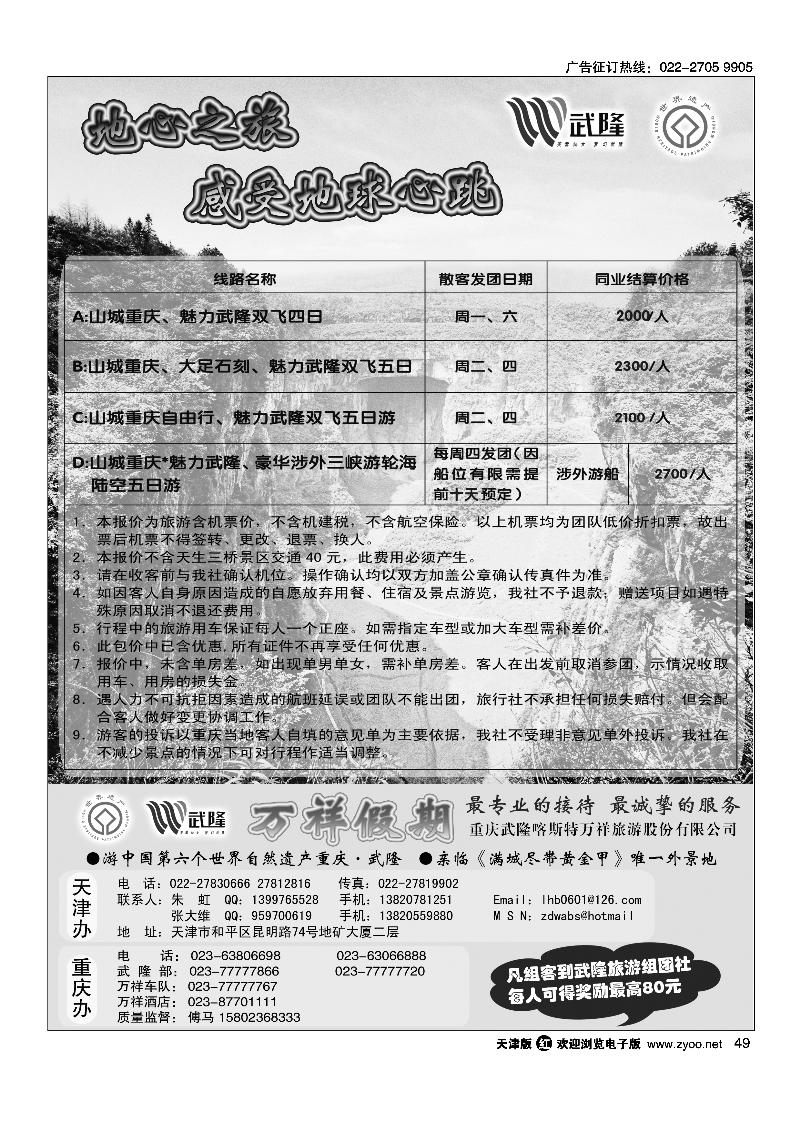 广告征订热线：022-2705 9905
地心之旅
武隆
世界遗产
感受地球心跳
线路名称 散客发团日期 同业结算价格
A:山城重庆、魅力武隆双飞四日 周一、六 2000/人
B:山城重庆、大足石刻、魅力武隆双飞五日 周二、四 2300/人
C:山城重庆自由行、魅力武隆双飞五日游 周二、四 2100/人
D:山城重庆*魅力武隆、豪华涉外三峡游轮海
陆空五日游
每周四发团（因
船位有限需提
前十天预定）
涉外游船 2700/人
1．本报价为旅游含机票价，不含机建税，不含航空保险。以上机票均为团队低价折扣票，故出
票后机票不得签转、更改、退票、换人。
2．本报价不含天生三桥景区交通40元，此费用必须产生。
3．请在收客前与我社确认机位。操作确认均以双方加盖公章确认传真件为准。
4．如因客人自身原因造成的自愿放弃用餐、住宿及景点游览，我社不予退款；赠送项目如遇特
殊原因取消不退还费用。
5．行程中的旅游用车保证每人一个正座。如需指定车型或加大车型需补差价。
6．此包价中已含优惠,所有证件不再享受任何优惠。
7．报价中，未含单房差，如出现单男单女，需补单房差。客人在出发前取消参团，示情况收取
用车、用房的损失金。
8．遇人力不可抗拒因素造成的航班延误或团队不能出团，旅行社不承担任何损失赔付。但会配
合客人做好变更协调工作。
9．游客的投诉以重庆当地客人自填的意见单为主要依据，我社不受理非意见单外投诉。我社在
不减少景点的情况下可对行程作适当调整。
世界遗产
武隆
万祥假期
最专业的接待 最诚挚的服务
重庆武隆喀斯特万祥旅游股份有限公司
●游中国第六个世界自然遗产重庆·武隆 ●亲临《满城尽带黄金甲》唯一外景地
天津办
电 话：022-27830666 27812816 传真：022-27819902
联系人：朱 虹 QQ：1399765528 手机：13820781251 Email：lhb0601@126.com
张大维 QQ：959700619 手机：13820559880 M S N：zdwabs@hotmail
地 址：天津市和平区昆明路74号地矿大厦二层
重庆办
电 话：023-63806698 023-63066888
武 隆 部：023-77777866 023-77777720
万祥车队：023-77777767
万祥酒店：023-87701111
质量监督：傅马 15802368333
凡组客到武隆旅游组团社
每人可得奖励最高80元
天津版 红 欢迎浏览电子版 www.zyoo.net 49